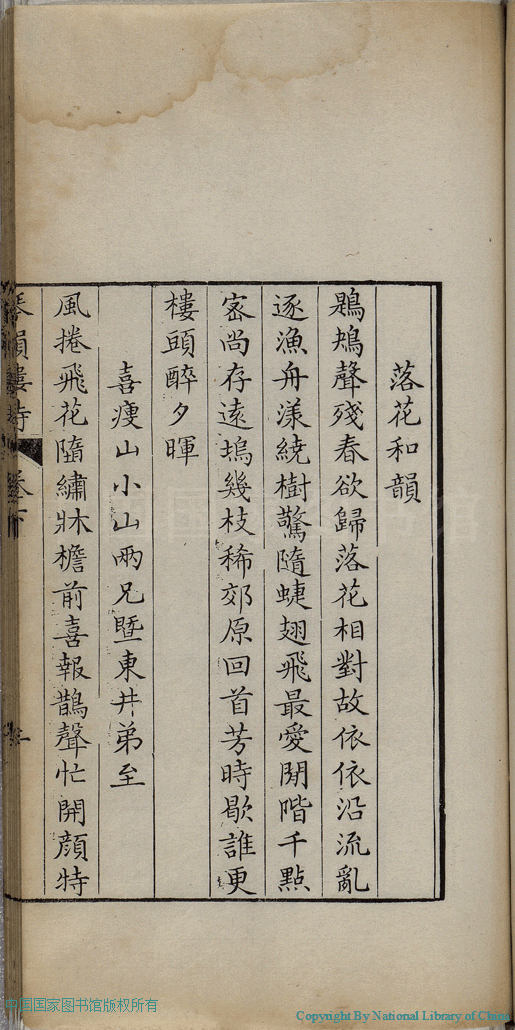 落花和韻
鶗鴂聲殘春欲歸落花相對故依依沿流亂
逐漁舟漾繞樹驚隨蜨翅飛最愛閒階千點
密尚存遠塢幾枝稀郊原回首芳時歇誰更
樓頭醉夕暉
喜瘦山小山兩兄暨東井弟至
風捲飛花隨繡牀檐前喜報鵲聲忙開顏特
琴韻樓詩 卷下
中国国家图书馆版权所有
Copyright By National Library of China